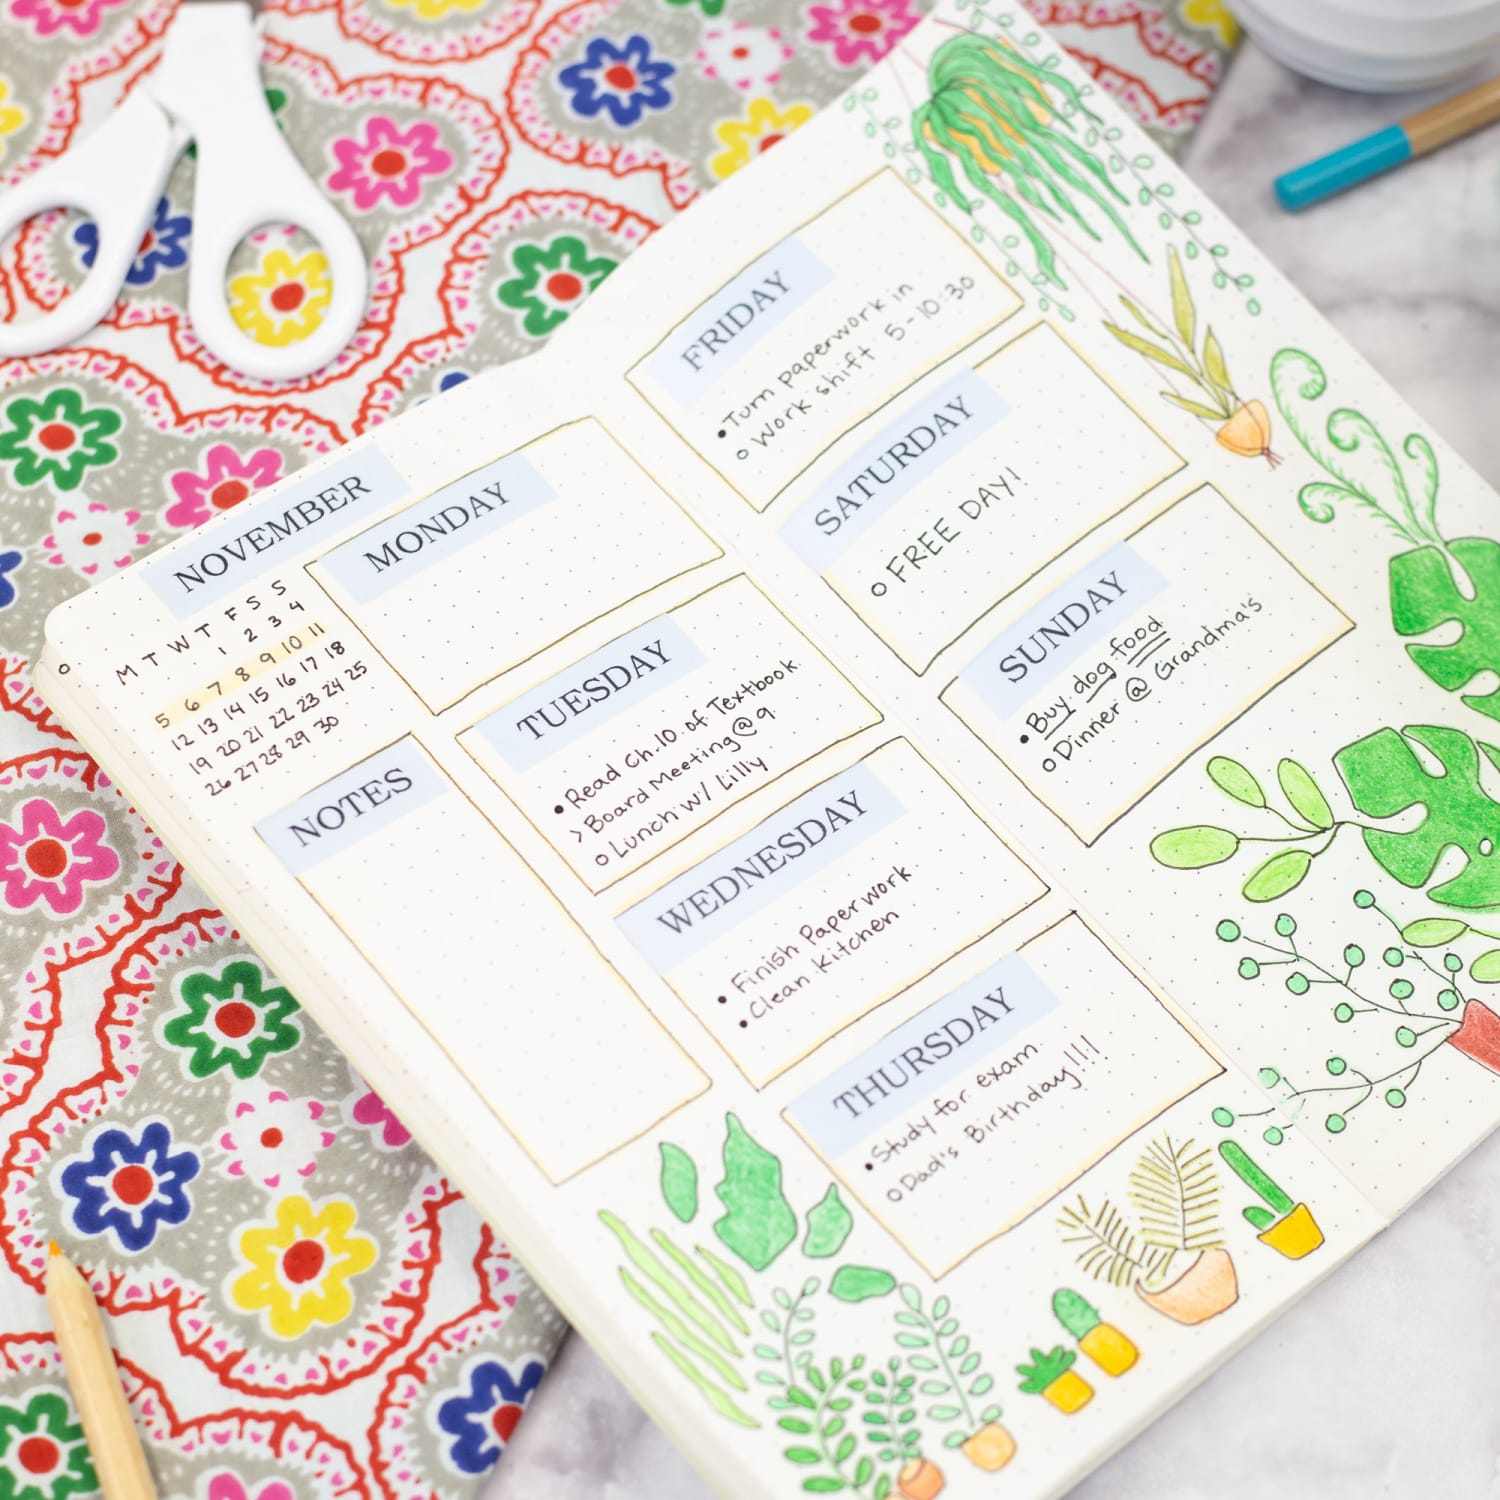 NOVEMBER
M T W T F S S
1 2 3 4
5 6 7 8 9 10 11
12 13 14 15 16 17 18
19 20 21 22 23 24 25
26 27 28 29 30
NOTES
MONDAY
TUESDAY
• Read Ch.10 of Textbook
> Board Meeting @ 9
o Lunch w/ Lilly
WEDNESDAY
• Finish Paperwork
• Clean Kitchen
THURSDAY
• Study for exam
o Dad's Birthday!!!
FRIDAY
• Turn paperwork in
o Work shift 5-10:30
SATURDAY
o FREE DAY!
SUNDAY
• Buy dog food
o Dinner @ Grandma's